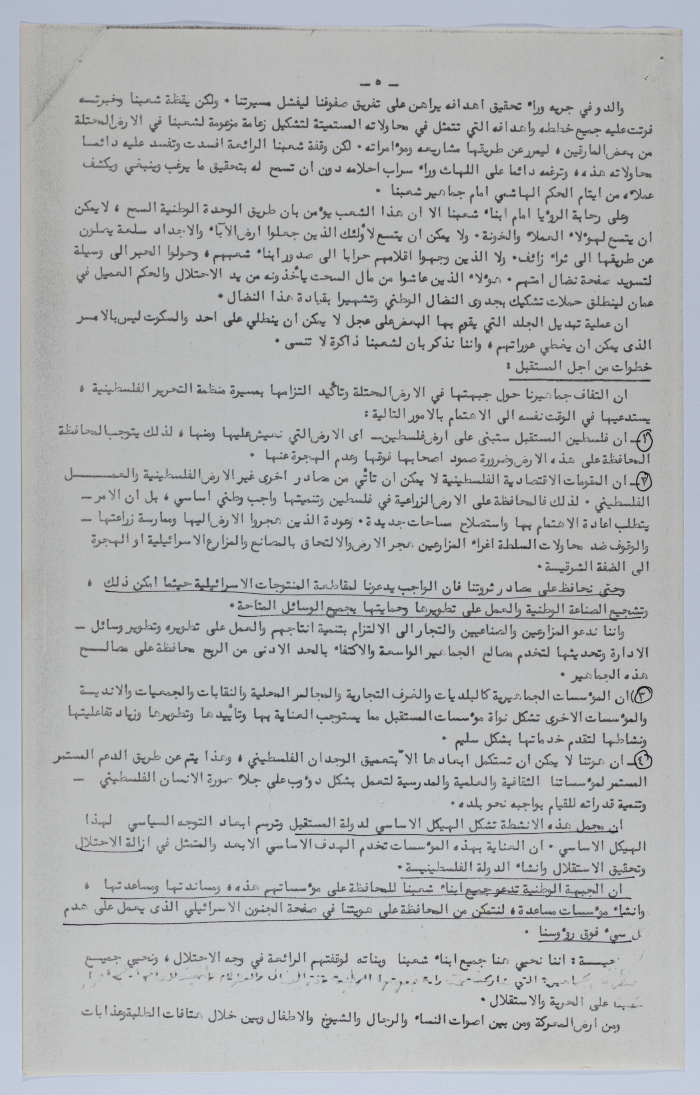 ــ ٥ ــ
والدو في جريه وراء تحقيق اهدافه يراهن على تفريق صفوفنا ليفشل مسيرتنا ٠ ولكن يقظة شعبنا وخبرته
فوتت عليه جميع خططه واهدافه التي تتمثل في محاولاته المستميتة لتشكيل زعامة مزعومة لشعبنا في الارض المحتلة
من بعض المارقين ، ليمرر عن طريقها مشاريعه ومؤامراته ٠ لكن وقفة شعبنا الرائعة افسدت وتفسد عليه دائما
محاولاته هذه ، وترغمه دائما على اللهاث وراء سراب احلامه دون ان تسمح له بتحقيق ما يرغب وينبغي ويكشف
عملاءه من ايتام الحكم الهاشمي امام جماهير شعبنا ٠
وعلى رحابة الرؤيا امام ابناء شعبنا الا ان هذا الشعب يؤمن بان طريق الوحدة الوطنية السمح ، لا يمكن
ان يتسع لهؤلاء العملاء والخونة ٠ ولا يمكن ان يتسع لأولئك الذين جعلوا ارض الآباء والاجداد سلعة يصلون
عن طريقها الى ثراء زائف ٠ ولا الذين وجهوا اقلامهم حرابا الى صدور ابناء شعبهم ، وحولوا الحبر الى وسيلة
لتسويد صفحة نضال امتهم ٠ هؤلاء الذين عاشوا من مال السحت يأخذونه من يد الاحتلال والحكم العميل في
عمان لينطلق حملات تشكيك بجدوى النضال الوطني وتشهيرا بقيادة هذا النضال ٠
ان عملية تبديل الجلد التي يقوم بها البعض على عجل لا يمكن ان ينطلي على احد والسكوت ليس بالامر
الذى يمكن ان يغطي عوراتهم ، واننا نذكر بان لشعبنا ذاكرة لا تنسى ٠
خطوات من اجل المستقبل :
ان التفاف جماهيرنا حول جبهتها في الارض المحتلة وتأكيد التزامها بمسيرة منظمة التحرير الفلسطينية ،
يستدعيها في الوقت نفسه الى الاهتمام بالامور التالية :
١ـ ان فلسطين المستقبل ستبنى على ارض فلسطين ــ اى الارض التي نعيش عليها ومنها ، لذلك يتوجب المحافظة
المحافظة على هذه الارض وضرورة صمود اصحابها فوقها وعدم الهجرة عنها ٠
٢ـ ان المقومات الاقتصادية الفلسطينية لا يمكن ان تأتي من مصادر اخرى غير الارض الفلسطينية والعمــــل
الفلسطيني ٠ لذلك فالمحافظة على الارض الزراعية في فلسطين وتنميتها واجب وطني اساسي ، بل ان الامر ــ
يتطلب اعادة الاهتمام بها واستصلاح مساحات جديدة ٠ وعودة الذين هجروا الارض اليها وممارسة زراعتها ــ
والوقوف ضد محاولات السلطة اغراء المزارعين هجر الارض والالتحاق بالمصانع والمزارع الاسرائيلية او الهجرة
الى الضفة الشرقية ٠
وحتى نحافظ على مصادر ثروتنا فان الواجب يدعونا لمقاطعة المنتوجات الاسرائيلية حيثما امكن ذلك ،
وتشجيع الصناعة الوطنية والعمل على تطويرها وحمايتها بجميع الوسائل المتاحة ٠
واننا ندعو المزارعين والصناعيين والتجار الى الالتزام بتنمية انتاجهم والعمل على تطويره وتطوير وسائل ــ
الادارة وتحديثها لتخدم مصالح الجماهير الواسعة والاكتفاء بالحد الادنى من الربح محافظة على مصالـــح
هذه الجماهير ٠
٣ـ ان المؤسسات الجماهيرية كالبلديات والغرف التجارية والمجالس المحلية والنقابات والجمعيات والاندية
والمؤسسات الاخرى تشكل نواة مؤسسات المستقبل مما يستوجب العناية بها وتأييدها وتطويرها وزياد تفاعليتها
ونشاطها لتقدم خدماتها بشكل سليم ٠
٤ـ ان هويتنا لا يمكن ان تستكمل ابعادها الا بتعميق الوجدان الفلسطيني ، وهذا يتم عن طريق الدعم المستمر
المستمر لمؤسساتنا الثقافية والعلمية والمدرسية لتعمل بشكل دؤوب على جلاء صورة الانسان الفلسطيني ــ
وتنمية قدراته للقيام بواجبه نحو بلده ٠
ان مجمل هذه الانشطة تشكل الهيكل الاساسي لدولة المستقبل وترسم ابعاد التوجه السياسي لهذا
الهيكل الاساسي ٠ ان العناية بهذه المؤسسات تخدم الهدف الاساسي الابعد والمتمثل في ازالة الاحتلال
وتحقيق الاستقلال وانشاء الدولة الفلسطينية ٠
ان الجبهة الوطنية تدعو جميع ابناء شعبنا للمحافظة على مؤسساتهم هذه ، ومساندتها ومساعدتها ،
وانشاء مؤسسات مساعدة ، لنتمكن من المحافظة على هويتنا في صفحة الجنون الاسرائيلي الذى يعمل على هدم
كل شيء فوق رؤوسنا ٠
اننا نحيي هنا جميع ابناء شعبنا وبناته لوقفتهم الرائعة في وجه الاحتلال ، ونحيي جميـــع
التي
شعبنا على الحرية والاستقلال ٠
ومن ارض المعركة ومن بين اصوات النساء والرجال والشيوخ والاطفال وبين خلال هتافات الطلبة وعذابات